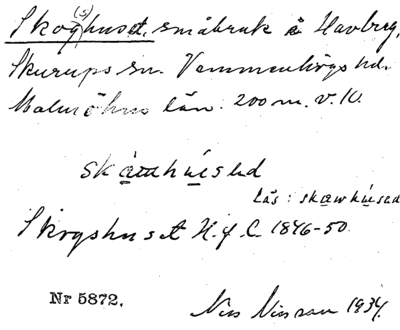 Skog(s)huset, småbruk å Havberg,
Skurups sn. Vemmenhögs hd.
Malmöhus län. 200 m. v. K.
Läs: skawhúsed
Skogshuset H.f.C. 1846-50.
Nr 5872.
Nils Nilsson 1934.